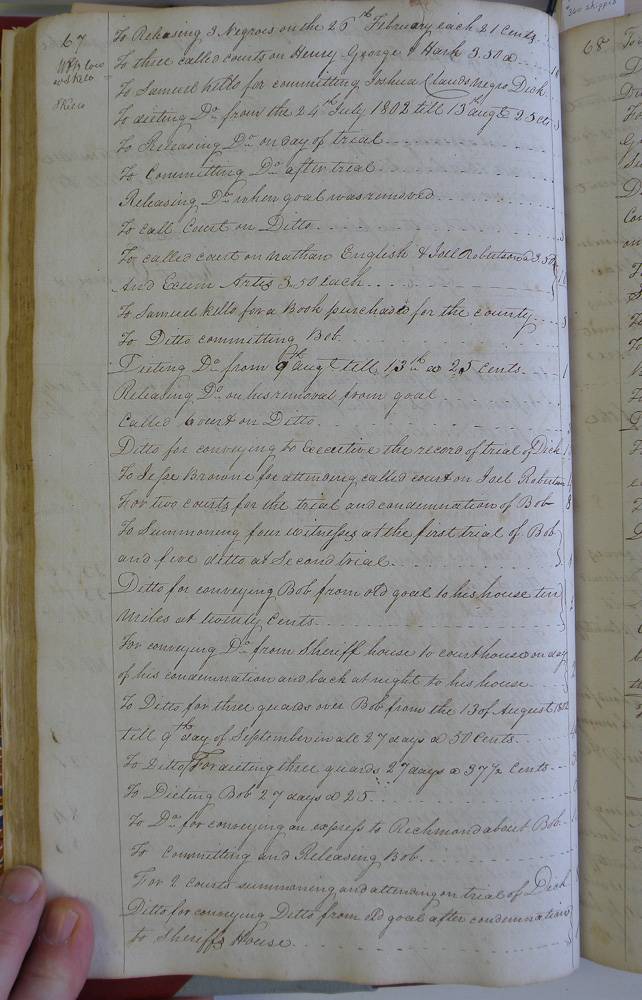 67
To Releasing 3 Negroes on the 26th February each 21 Cents
To three called courts on Henry George & Hark 3.50 a
To Samuel Kello for committing Joshua Clauds negro Dick
To dieting Do. from the 24th July 1802 till 13th augt @ 25 cts
To Releasing Do. on day of trial
To Committing Do. after trial
Releasing Do. when goal was removed
To Call Court on Ditto
To called court on nathan English & Joel Robertson @ 3.50
And Exum Artis 3.50 each
To Samuel Kello for a Book purchased for the county
To Ditto committing Bob
Dieting Do. from 9th augt till 13th @ 25 Cents
Releasing Do. on his removal from goal
Called Court on Ditto
Ditto for conveying to Executive the record of trial of Dick
To Jesse Browne for attending called court on Joel Robertson
For two courts for the trial and condemnation of Bob
To Summoning four witnesses at the first trial of Bob
and five ditto at Second trial
Ditto for conveying Bob from old goal to his house ten
miles at twenty Cents
For conveying Do. from Sheriff house to courthouse on day
of his condemnation and back at night to his house
To Ditto for three guards over Bob from the 13 of August 1802
till 9th day of September in all 27 days @ 50 Cents
To Ditto For dieting three guards 27 days @ 37½ Cents
To Dieting Bob 27 days @ 25
To Do. for conveying an express to Richmond about Bob
To Committing and Releasing Bob
For 2 Courts summoning and attending on trial of Dick
Ditto for conveying Ditto from old goal after condemnation
to Sheriffs House
68